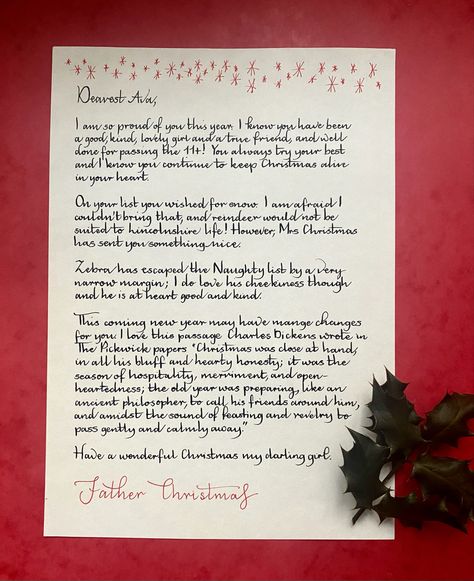 Dearest Ava,
I am so proud of you this year. I know you have been
a good, kind, lovely girl and a true friend, and well
done for passing the 11+! You always try your best
and I know you continue to keep Christmas alive
in your heart.
On your list you wished for snow. I am afraid I
couldn't bring that, and reindeer would not be
suited to Lincolnshire life! However, Mrs Christmas
has sent you something nice.
Zebra has escaped the Naughty list by a very
narrow margin; I do love his cheekiness though
and he is at heart good and kind.
This coming new year may have mange changes
for you. I love this passage Charles Dickens wrote in
The Pickwick papers "Christmas was close at hand,
in all his bluff and hearty honesty; it was the
season of hospitality, merriment, and open-
heartedness; the old year was preparing, like an
ancient philosopher, to call his friends around him,
and amidst the sound of feasting and revelry to
pass gently and calmly away."
Have a wonderful Christmas my darling girl.
Father Christmas